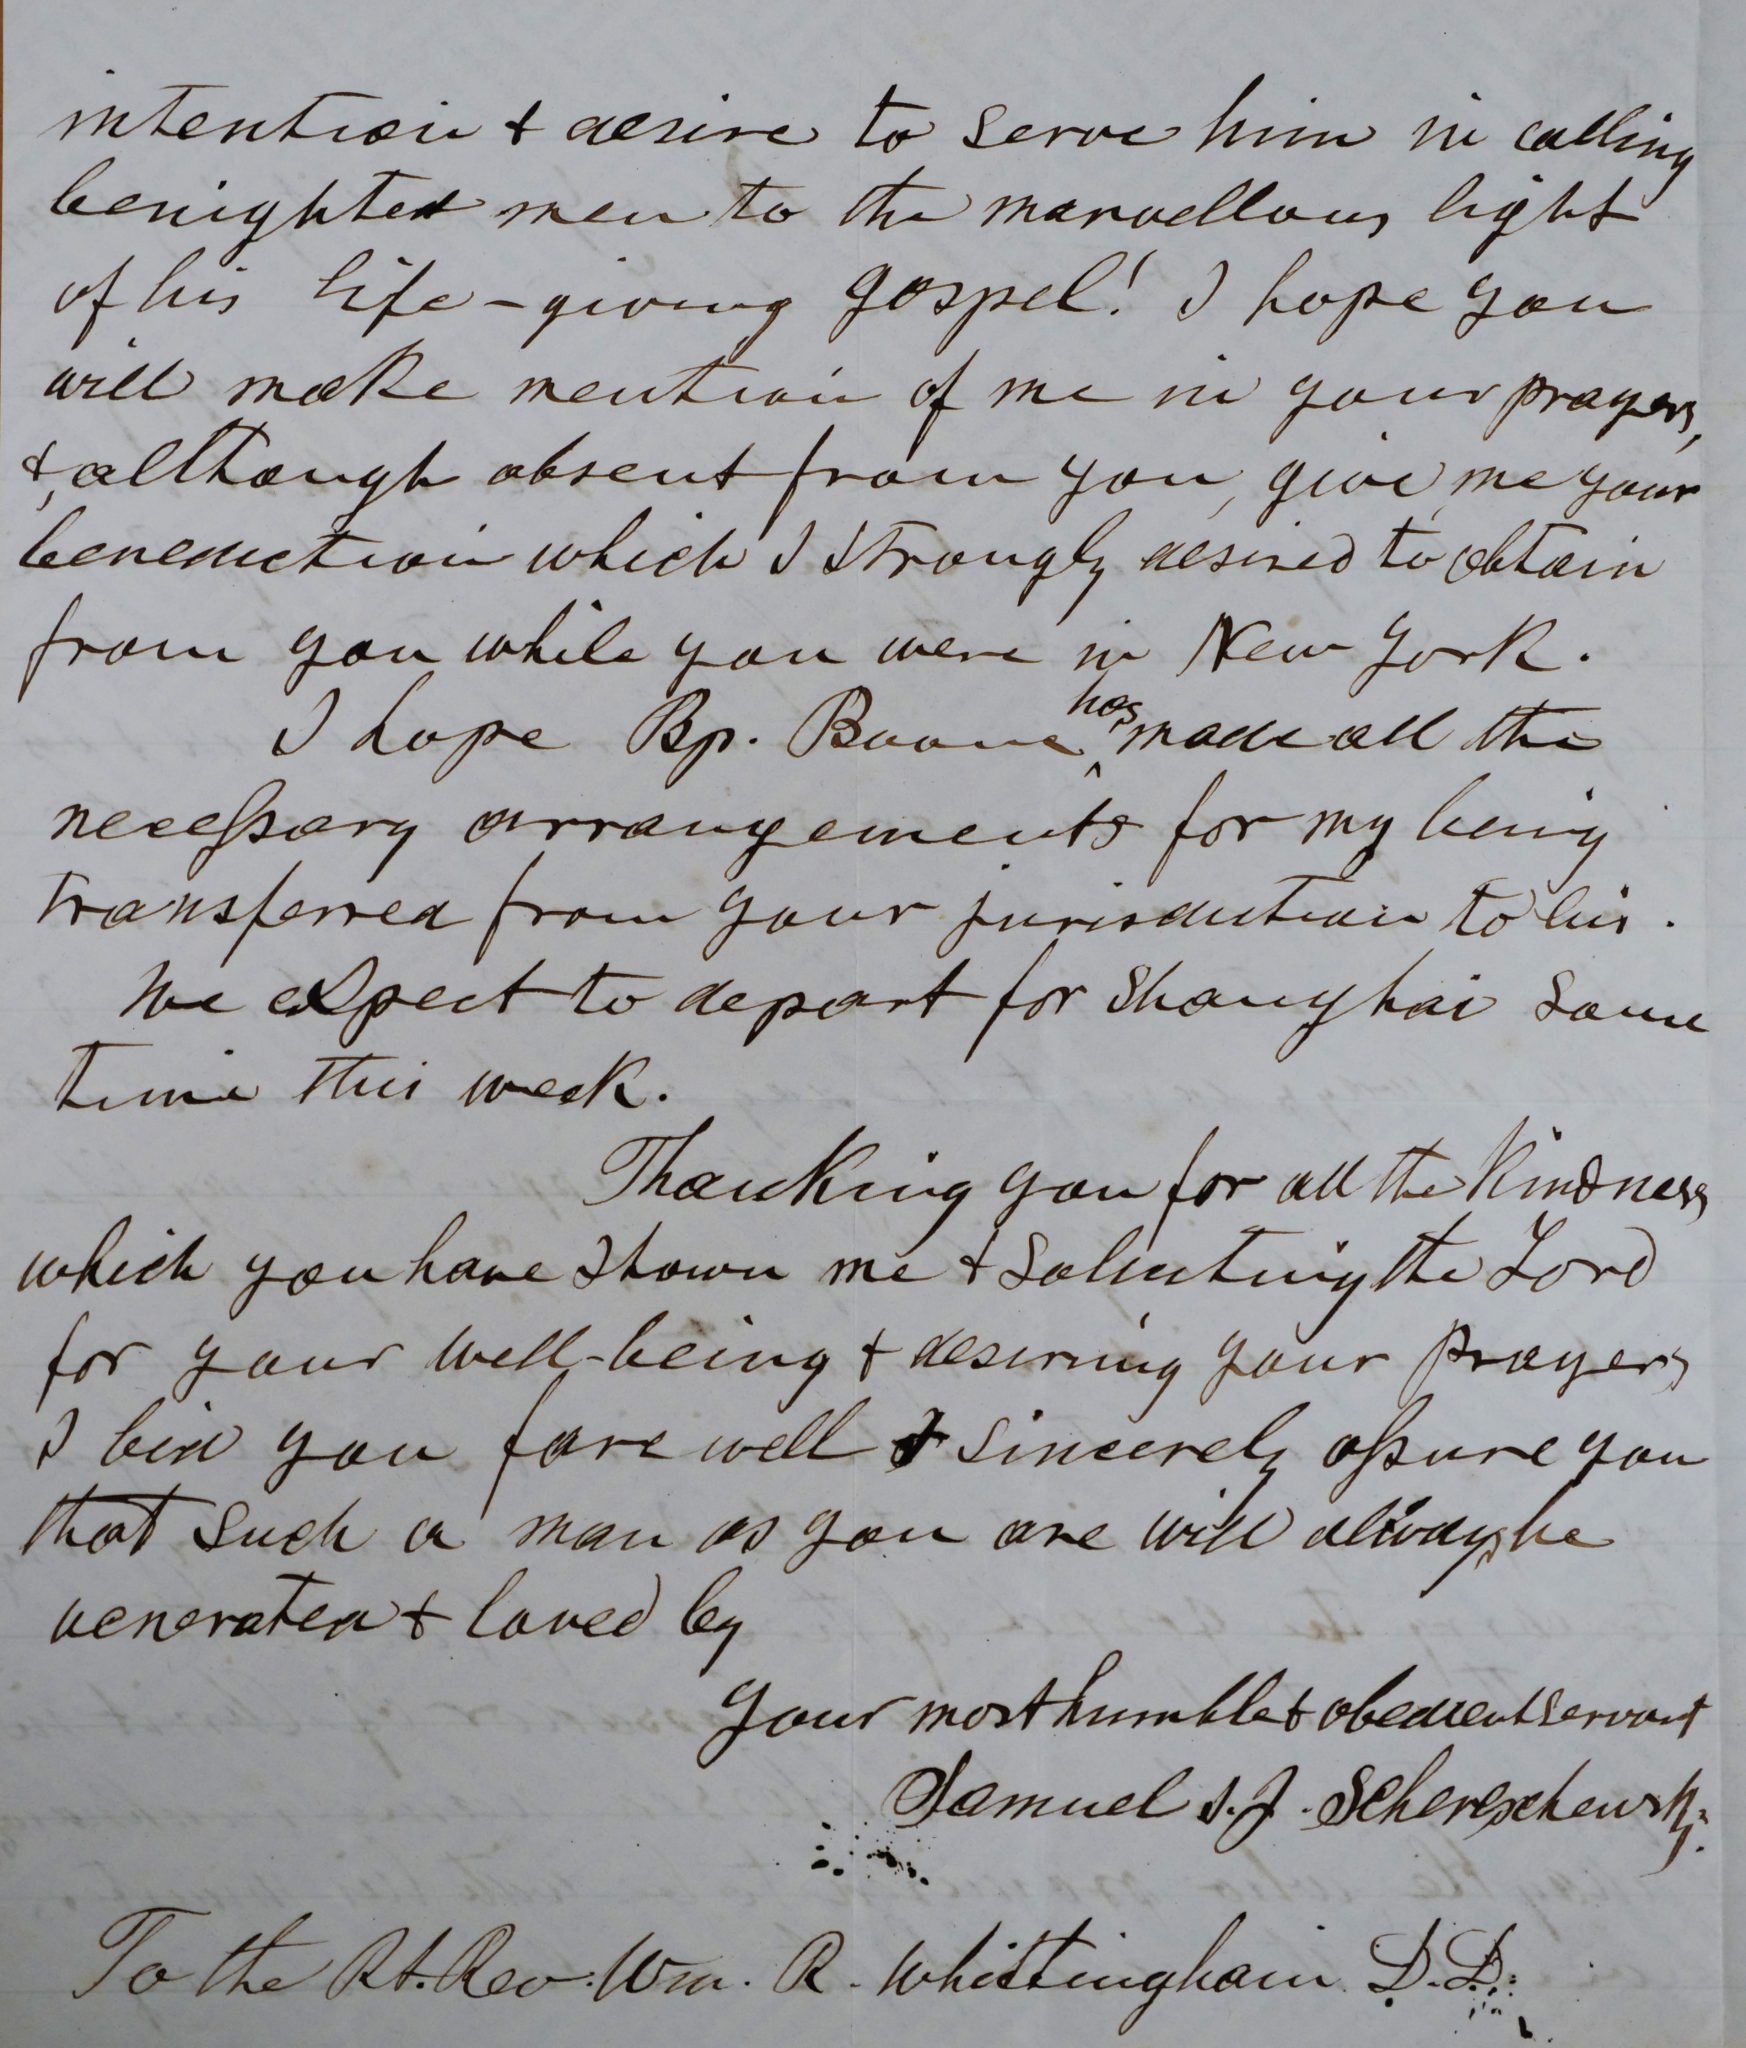 intention & desire to serve him in calling
benighted men to the marvellous light
of his life-giving gospel! I hope you
will make mention of me in your prayers,
&, although absent from you, give me your
benediction which I strongly desired to obtain
from you while you were in New York.
I hope Bp. Boone ^has made all the
necessary arrangements for my being
transferred from your jurisdiction to his.
We expect to depart for Shanghai some
time this week.
Thanking you for all the kindness
which you have shown me & soliciting the Lord
for your well-being & desiring your prayers
I bid you farewell & sincerely assure you
that such a man as you are will always be
venerated & loved by
your most humble & obedient servant
Samuel I. J. Schereschewsky.
To the Rt. Rev. Wm. R. Whittingham D.D.